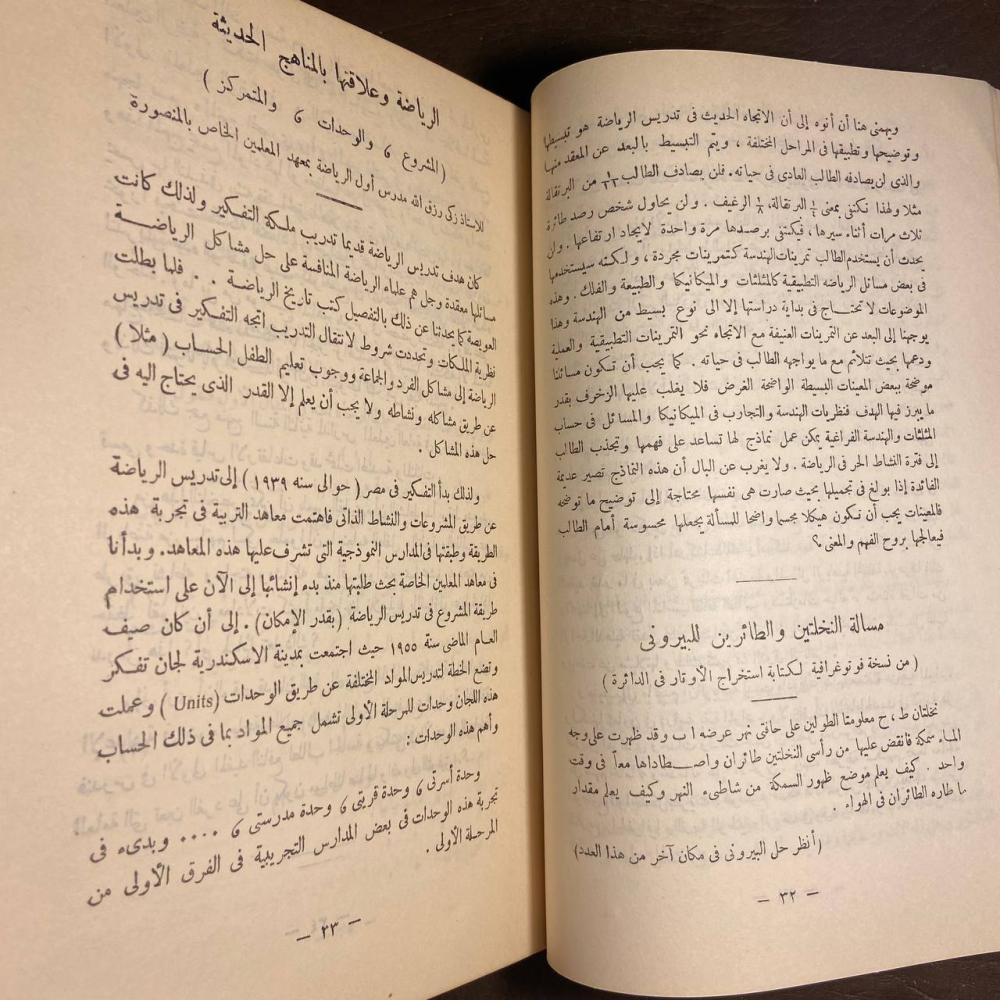 ويهمنى هنا أن أنوه إلى أن الاتجاه الحديث فى تدريس الرياضة هو تبسيطها
وتوضيحها وتطبيقها فى المراحل المختلفة ، ويتم التبسيط بالبعد عن المعقد منها
والذى لن يصادفه الطالب العادى فى حياته . فلن يصادف الطالب من البرتقالة
مثلا ولهذا نكتفى بمعنى البرتقالة، ⅛ الرغيف . ولن يحاول شخص رصد طائرة
ثلاث مرات أثناء سيرها ، فيكتفى برصدها مرة واحدة لايجاد ارتفاعها . ولن
يحدث أن يستخدم الطالب تمرينات الهندسة كتمرينات مجردة ، ولكنه سيستخدمها
فى بعض مسائل الرياضه التطبيقية كالمثلثات والميكانيكا والطبيعة والفلك . وهذه
الموضوعات لا تحتاج فى بداية دراستها إلا الى نوع بسيط من الهندسة وهذا
يوجهنا إلى البعد عن التمرينات العنيفة مع الاتجاه نحو التمرينات التطبيقية والعملية
ودعمها بحيث تتلائم مع ما يواجهه الطالب فى حياته . كما يجب أن تكون مسائلنا
موضحة ببعض المعينات البسيطة الواضحة الغرض فلا يغلب عليها الزخرف بقدر
ما يبرز فيها الهدف فنظريات الهندسة والتجارب فى الميكانيكا والمسائل فى حساب
المثلثات والهندسة الفراغية يمكن عمل نماذج لها تساعد على فهمها وتجذب الطالب
إلى فترة النشاط الحر فى الرياضة . ولا يغرب عن البال أن هذه النماذج تصير عديمة
الفائدة إذا بولغ فى تجميلها بحيث صارت هى نفسها محتاجة إلى توضيح ما توضحه
فالمعينات يجب أن تكون هيكلا مجسما واضحا للمسألة يجعلها محسوسة أمام الطالب
فيعالجها بروح الفهم والمعنى ؟
مسالة النخلتين والطائرين للبيرونى
( من نسخة فوتوغرافية لكتابة استخراج الأوتار فى الدائرة )
نخلتان ط ، ح معلومتا الطولين على حافتى نهر عرضه ا ب وقد ظهرت على وجه
الماء سمكة فانقض عليها من رأسى النخلتين طائران واصطاداها معاً فى وقت
واحد . كيف يعلم موضع ظهور السمكة من شاطىء النهر وكيف يعلم مقدار
ما طاره الطائران فى الهواء .
(أنظر حل البيرونى فى مكان آخر من هذا العدد)
— ٣٢ —
الرياضة وعلاقتها بالمناهج الحديثة
( المشروع ، والوحدات ، والمتمركز )
للاستاذ زكى رزق الله مدرس أول الرياضة بمعهد المعلمين الخاص بالمنصورة
كان هدف تدريس الرياضة قديما تدريب ملكة التفكير ولذلك كانت
مسائلها معقدة وجل هم علماء الرياضة المنافسة على حل مشاكل الرياضة
العويصة كما يحدثنا عن ذلك بالتفصيل كتب تاريخ الرياضة . . فلما بطلت
نظرية الملكات وتحددت شروط لانتقال التدريب اتجه التفكير فى تدريس
الرياضة إلى مشاكل الفرد والجماعة ووجوب تعليم الطفل الحساب ( مثلا )
عن طريق مشاكله ونشاطه ولا يجب أن يعلم إلا القدر الذى يحتاج اليه فى
حل هذه المشاكل .
ولذلك بدأ التفكير فى مصر ( حوالى سنه ١٩٣٩ ) إلى تدريس الرياضة
عن طريق المشروعات والنشاط الذاتى فاهتمت معاهد التربية فى تجربة هذه
الطريقة وطبقتها فى المدارس النموذجية التى تشرف عليها هذه المعاهد. وبدأنا
فى معاهد المعلمين الخاصة بحث طلبتها منذ بدء إنشائها إلى الآن على استخدام
طريقة المشروع فى تدريس الرياضة (بقدر الإمكان) . إلى أن كان صيف
العام الماضى سنة ١٩٥٥ حيث اجتمعت بمدينة الاسكندرية لجان تفكر
وتضع الخطة لتدريس المواد المختلفة عن طريق الوحدات (Units ) وعملت
هذه اللجان وحدات للمرحلة الأولى تشمل جميع المواد بما فى ذلك الحساب
وأهم هذه الوحدات :
وحدة أسرتى ، وحدة قريتى ، وحدة مدرستى ، . . . . وبدىء فى
تجربة هذه الوحدات فى بعض المدارس التجريبية فى الفرق الأولى من
المرحلة الأولى .
— ٣٣ —